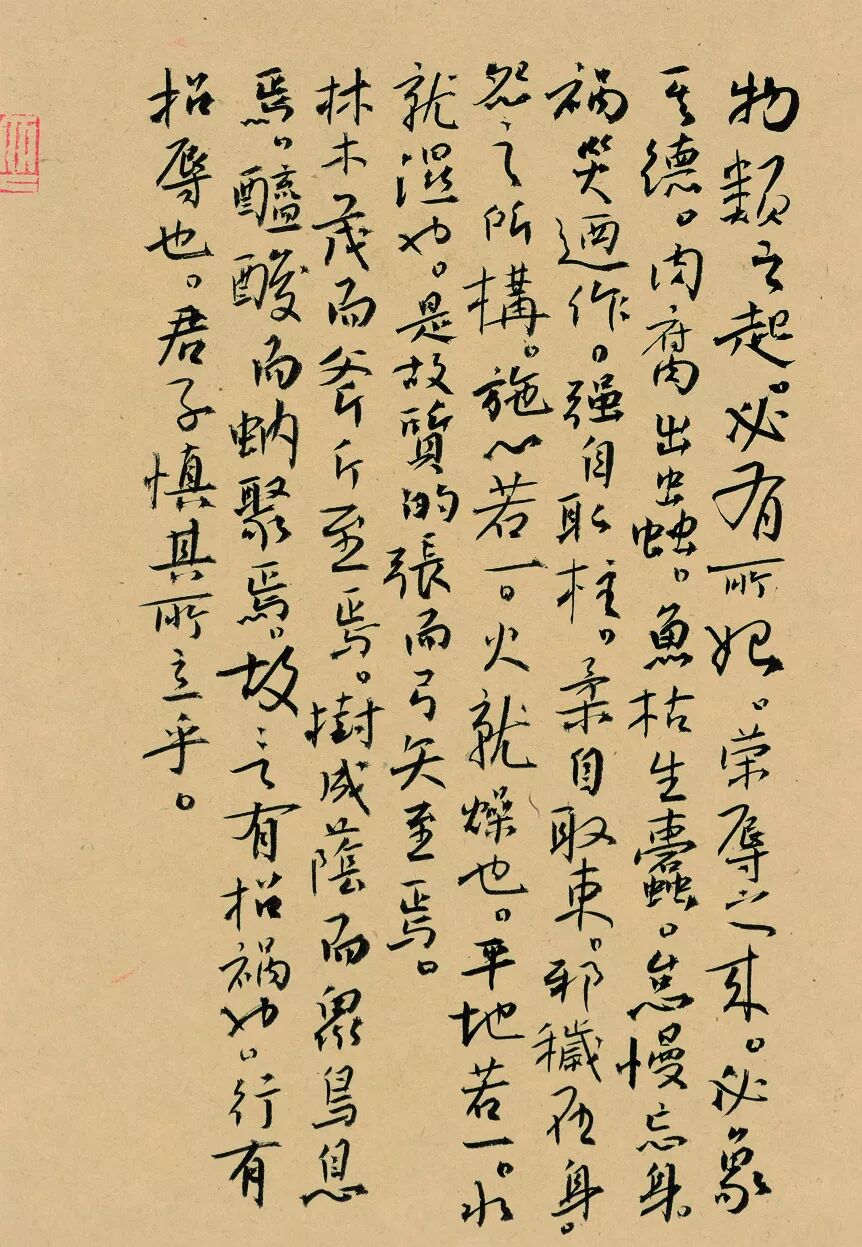 物類之起。必有所始。荣辱之来。必象
其德。肉腐出蟲。魚枯生蠹。怠慢忘身。
禍災迺作。强自取柱。柔自取束。邪穢在身。
怨之所構。施心若一。火就燥也。平地若一。水
就濕也。是故質的張而弓矢至焉。
林木茂而斧斤至焉。樹成蔭而衆鳥息
焉。醯酸而蚋聚焉。故言有招禍也。行有
招辱也。君子慎其所立乎。